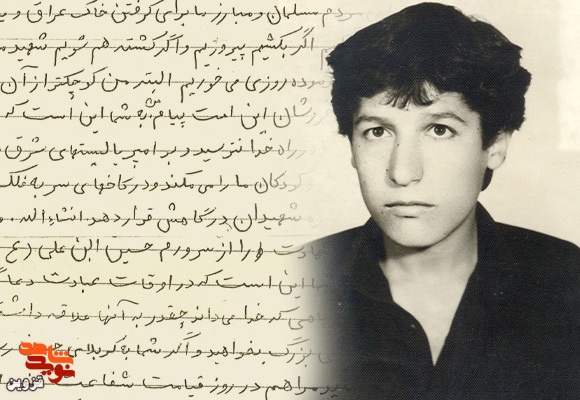 مردم مسلمان و مبارز ما برای گرفتن خاک عراق و
اگر بکشیم پیروزیم و اگر کشته هم شویم شهید
روزی می خوریم البته من کوچکتر از آن
این امت پیامم به شما این است که
راه خدا نترسید و بر امپریالیستهای شرق
کودکان ما را می مکند و در کاخهای سر به فلک
شهیدان درگاهش قرار دهد انشاء الله
را از سرورم حسین ابن علی (ع)
این است که در اوقات عبادت دعا
که خدا می داند چقدر به آنها علاقه
بزرگ بخواهید و اگر شما به کربلا
مرا هم در روز قیامت شفاعت
نوید شاهد
قزوین